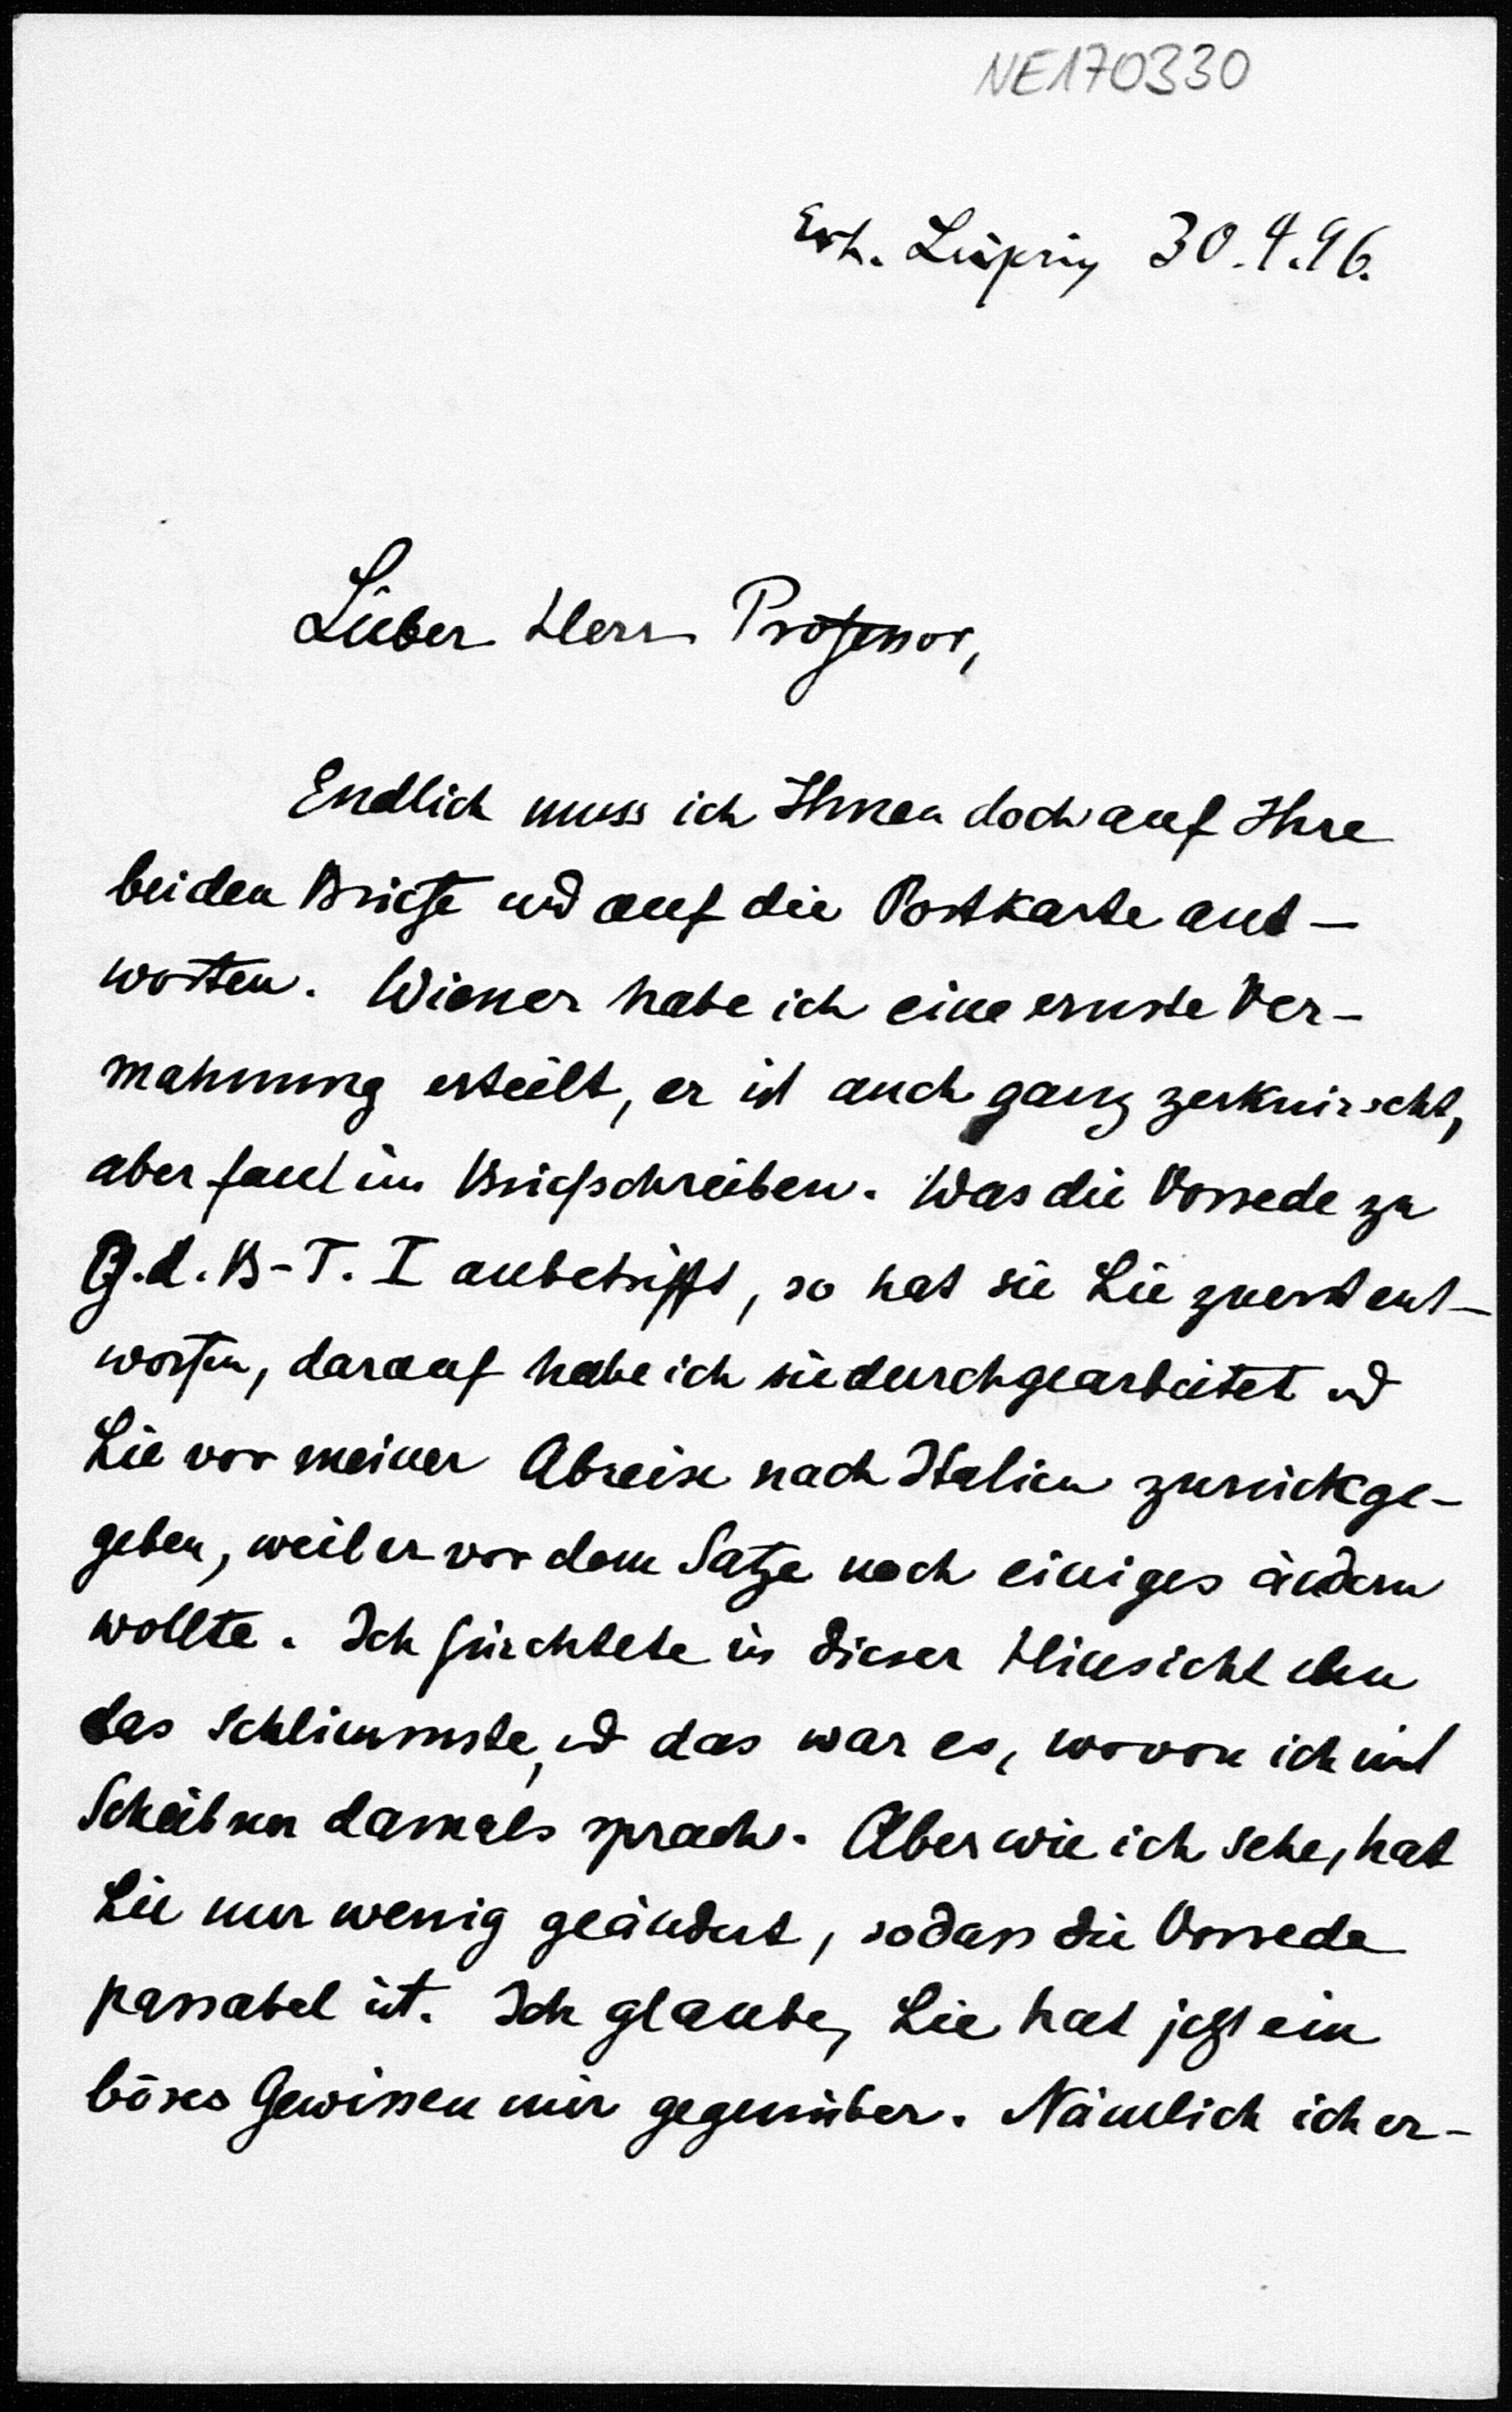 NE170330
Leipzig 30.4.96.
Lieber Herr Professor,
Endlich muss ich Ihnen doch auf Ihre
beiden Briefe und auf die Postkarte ant-
worten. Wiener habe ich eine ernste Ver-
mahnung erteilt, er ist auch ganz zerknirscht,
aber faul im Briefschreiben. Was die Vorrede zu
G.d.B-T. I anbetrifft, so hat sie Lie zuerst ent-
worfen, darauf habe ich sie durchgearbeitet und
Lie vor meiner Abreise nach Italien zurückge-
geben, weil er vor dem Satze noch einiges ändern
wollte. Ich fürchtete in dieser Hinsicht eben
das schlimmste, und das war es, wovon ich mit
Scheibner damals sprach. Aber wie ich sehe, hat
Lie nur wenig geändert, sodass die Vorrede
passabel ist. Ich glaube, Lie hat jetzt ein
böses Gewissen mir gegenüber. Nämlich ich er-